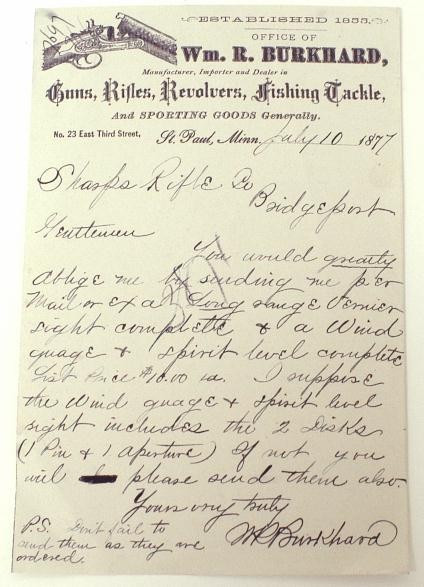 7647
ESTABLISHED 1855.
OFFICE OF
Wm. R. BURKHARD,
Manufacturer, Importer and Dealer in
Guns, Rifles, Revolvers, Fishing Tackle,
And SPORTING GOODS Generally.
No. 23 East Third Street, St. Paul, Minn. July 10 1877
Sharps Rifle Co
Bridgeport
Gentlemen
You would greatly
oblige me by sending me per
Mail or Ex a Long range Vernier
sight complete & a Wind
guage & spirit level complete
List Price $10.00 ea. I suppose
the Wind guage & spirit level
sight includes the 2 Disks
(1 Pin & 1 aperture) If not you
will please send them also.
Yours very truly
WR Burkhard
P.S. Don't fail to
send them as they are
ordered.